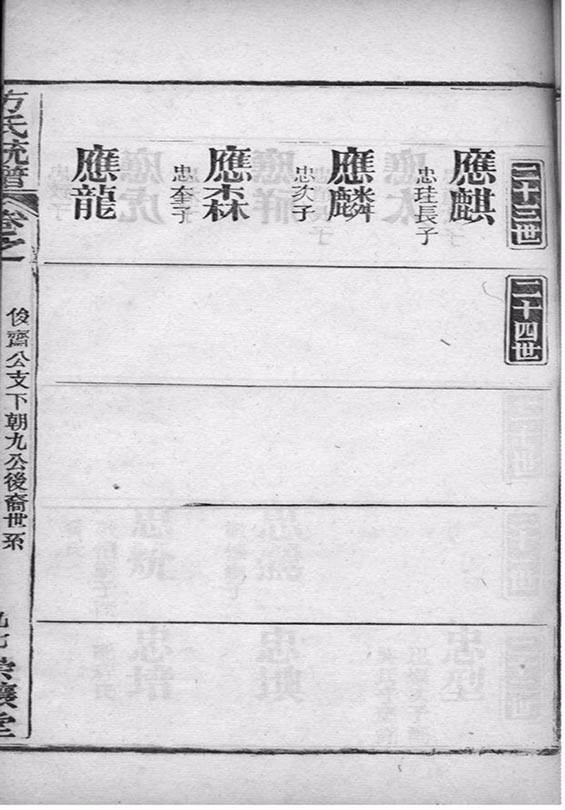 二十三世
應麒
忠珪長子
應麟
忠次子
應森
忠奎子
應龍
二十四世
方氏統譜
卷之
俊齋公支下朝九公後裔世系